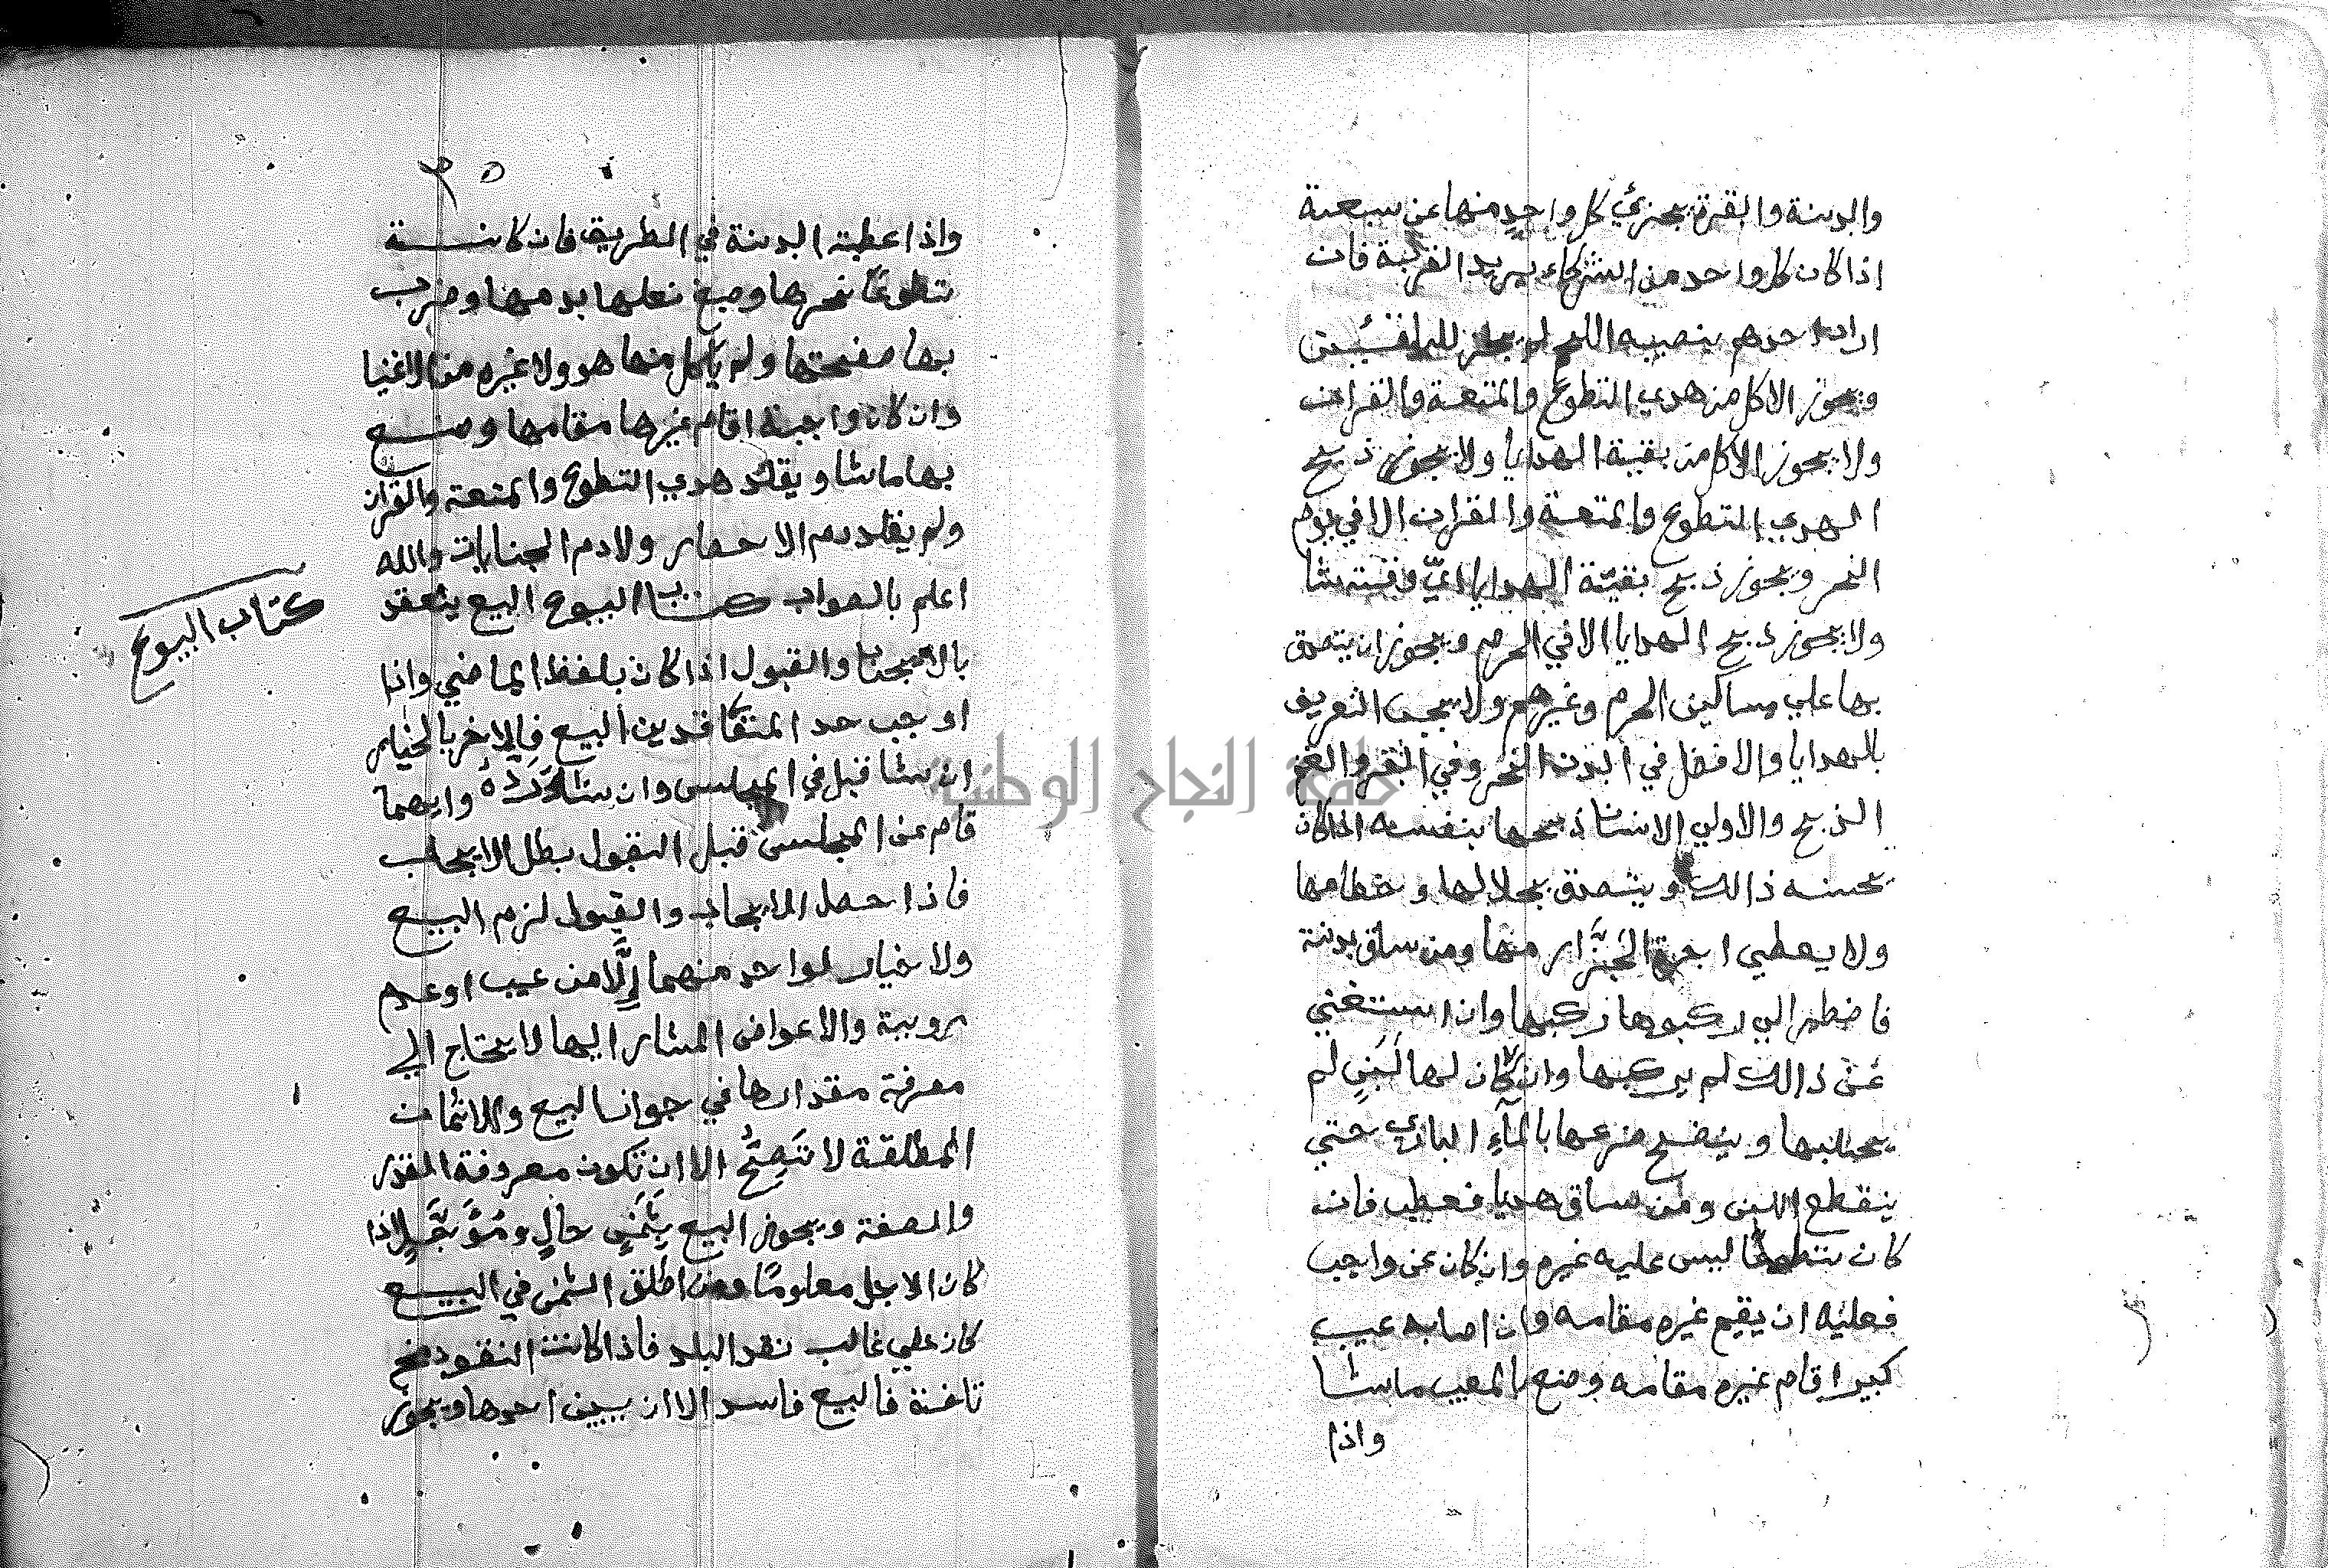 والبدنة والبقرة يجزئ كل واحد منها عن سبعة
اذا كان كل واحد من الشركاء يريد القربة فان
اراد احدهم بنصيبه اللحم لم يجز للباقين
ويجوز الاكل من هدي التطوع والمتعة والقران
ولا يجوز الاكل من بقية الهدايا ولا يجوز ذبح
الهدي التطوع والمتعة والقران الا في يوم
النحر ويجوز ذبح بقية الهدايا اي وقت شا
ولا يجوز ذبح الهدايا الا في الحرم ويجوز ان يتصدق
بها علي مساكين الحرم وغيرهم ولا يجب التعريف
بالهدايا والافضل في البدن النحر وفي البقر والغنم
الذبح والاولي الانسان ذبحها بنفسه اذا كان
يحسنه ذالك ويتصدق بجلالها وخطامها
ولا يعطي اجرة الجَزَّار منها ومن ساق بدنة
فاضطر الي ركبوها ركبها وان استغني
عن ذالك لم يركبها وان كان لها لَبَنٍ لم
يحتلبها وينضح ضرعها بالمآءِ البارد حتي
ينقطع اللبن ومن ساق هديا فعطب فان
كان تتطوعًا ليس عليه غيره وان كان عن واجب
فعليه ان يقيم غيره مقامه وان اصابه عيب
كبيرا قام غيره مقامه وصنع بالمعيب ما شا
واذا
٣٥
واذا عطبة البدنة في الطريق فان كانــــة
تتطوعًا نحرها وصبغ نعلها بدمها وضرب
بها صفحتها ولم ياكل منها هو ولا غيره من الاغنيا
وان كان واجبة اقام غيرها مقامها وصنع
بها ما شا ويقلد هدي التطوع والمتعة والقران
ولم يقلد دم الاحصار ولا دم الجنايات والله
اعلم بالصواب كتاب البيوع البيع ينعقد
كتاب البيوع
بالايجاب والقبول اذا كان بلفظ الماضي واذا
اوجب حد المتعاقدين البيع فالاخر بالخيار
ان شا قبل في المجلس وان شا رَدَّه وايهما
قام عن المجلس قبل القبول بطل الايجاب
فاذا حصل الايجاب والقبول لزم البيع
ولا خيار لواحد منهما إلَّا من عيب او عدم
روية والاعواض المشار اليها لا يحتاج الي
معرفة مقدارها في جوانا لبيع والاثمان
المطلقة لا تَصِحُّ الا ان تكون معروفة القدر
والصفة ويجوز البيع بِثَمَنٍ حالٍ ومُؤَجَّلٍ اذا
كان الاجل معلومًا ومن اطلق الثمن في البيع
كان علي غالب نقد البلد فاذا كانت النقود مخ
تاغنة فالبيع فاسد الا ان يبين احدها ويجوز
جامعة النجاح الوطنية